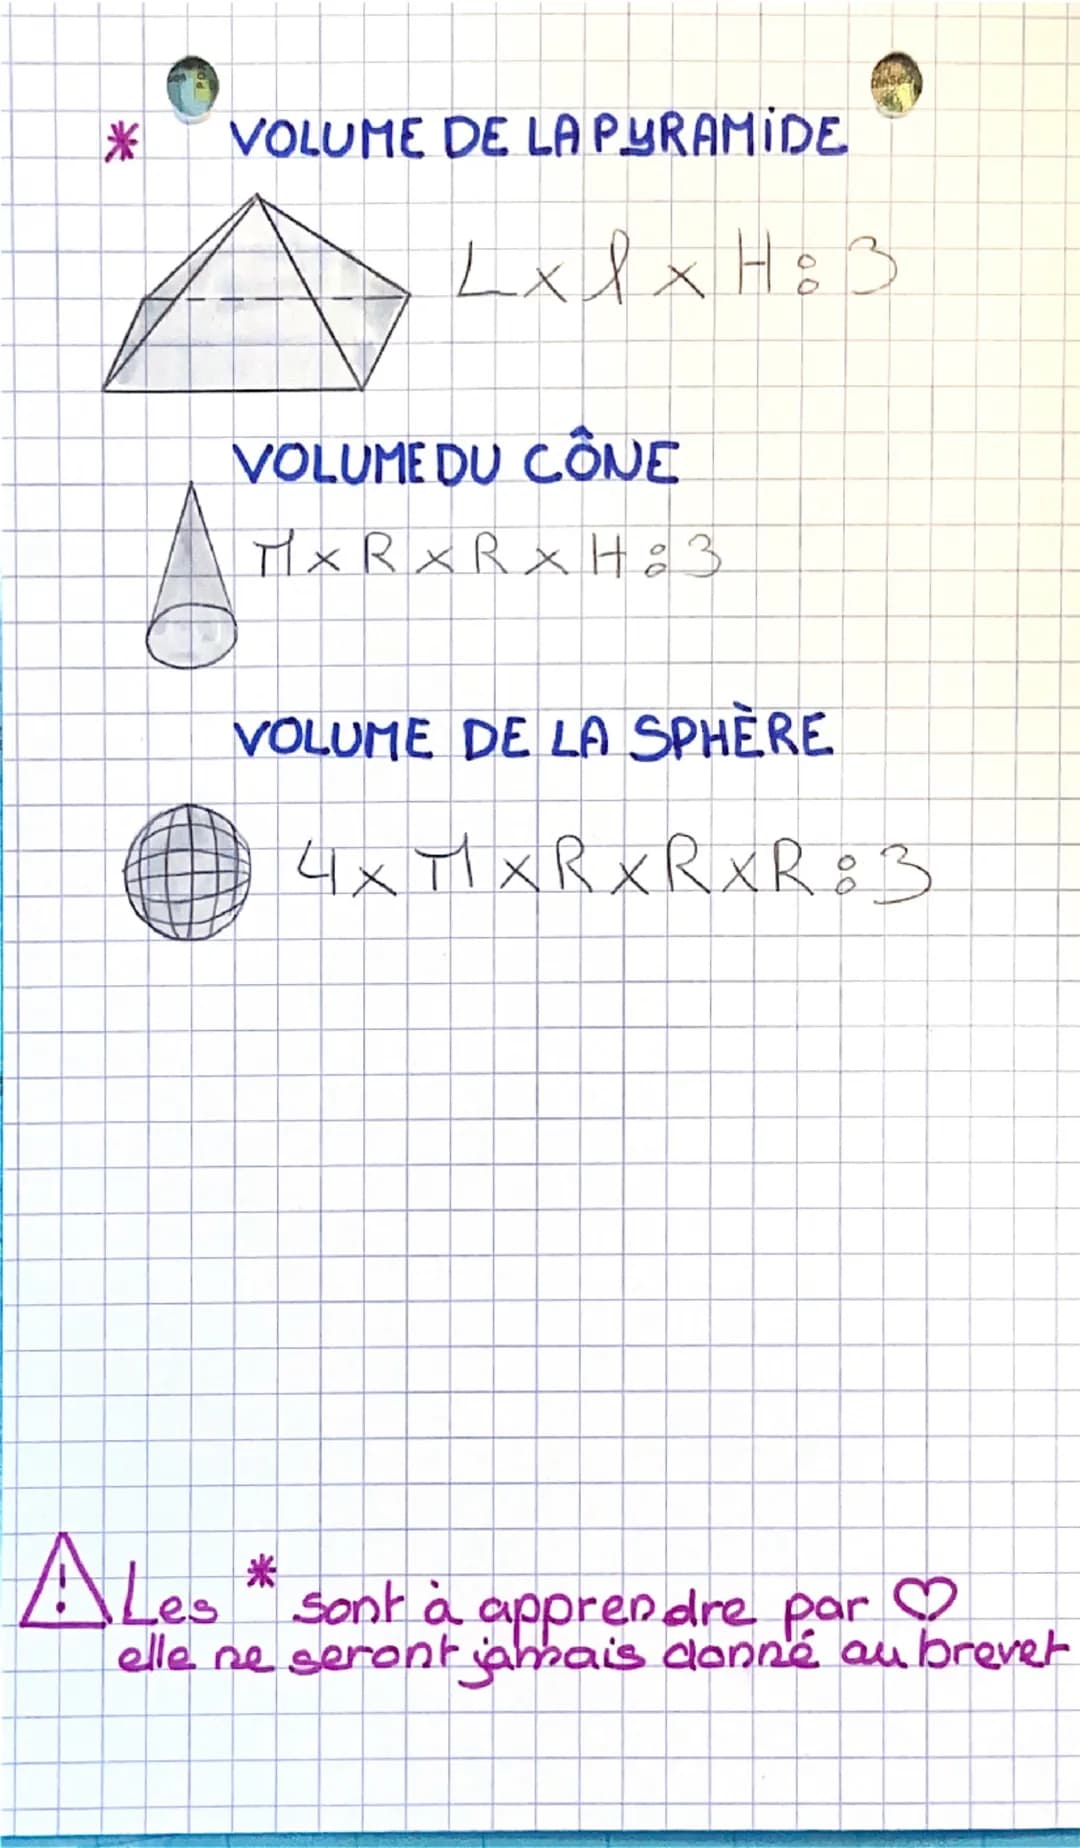 * VOLUME DE LA PYRAMIDE
L x l x H : 3
VOLUME DU CÔNE
π x R x R x H : 3
VOLUME DE LA SPHÈRE
4 x π x R x R x R : 3
⚠ Les * sont à apprendre par ♡
elle ne seront jamais donné au brevet